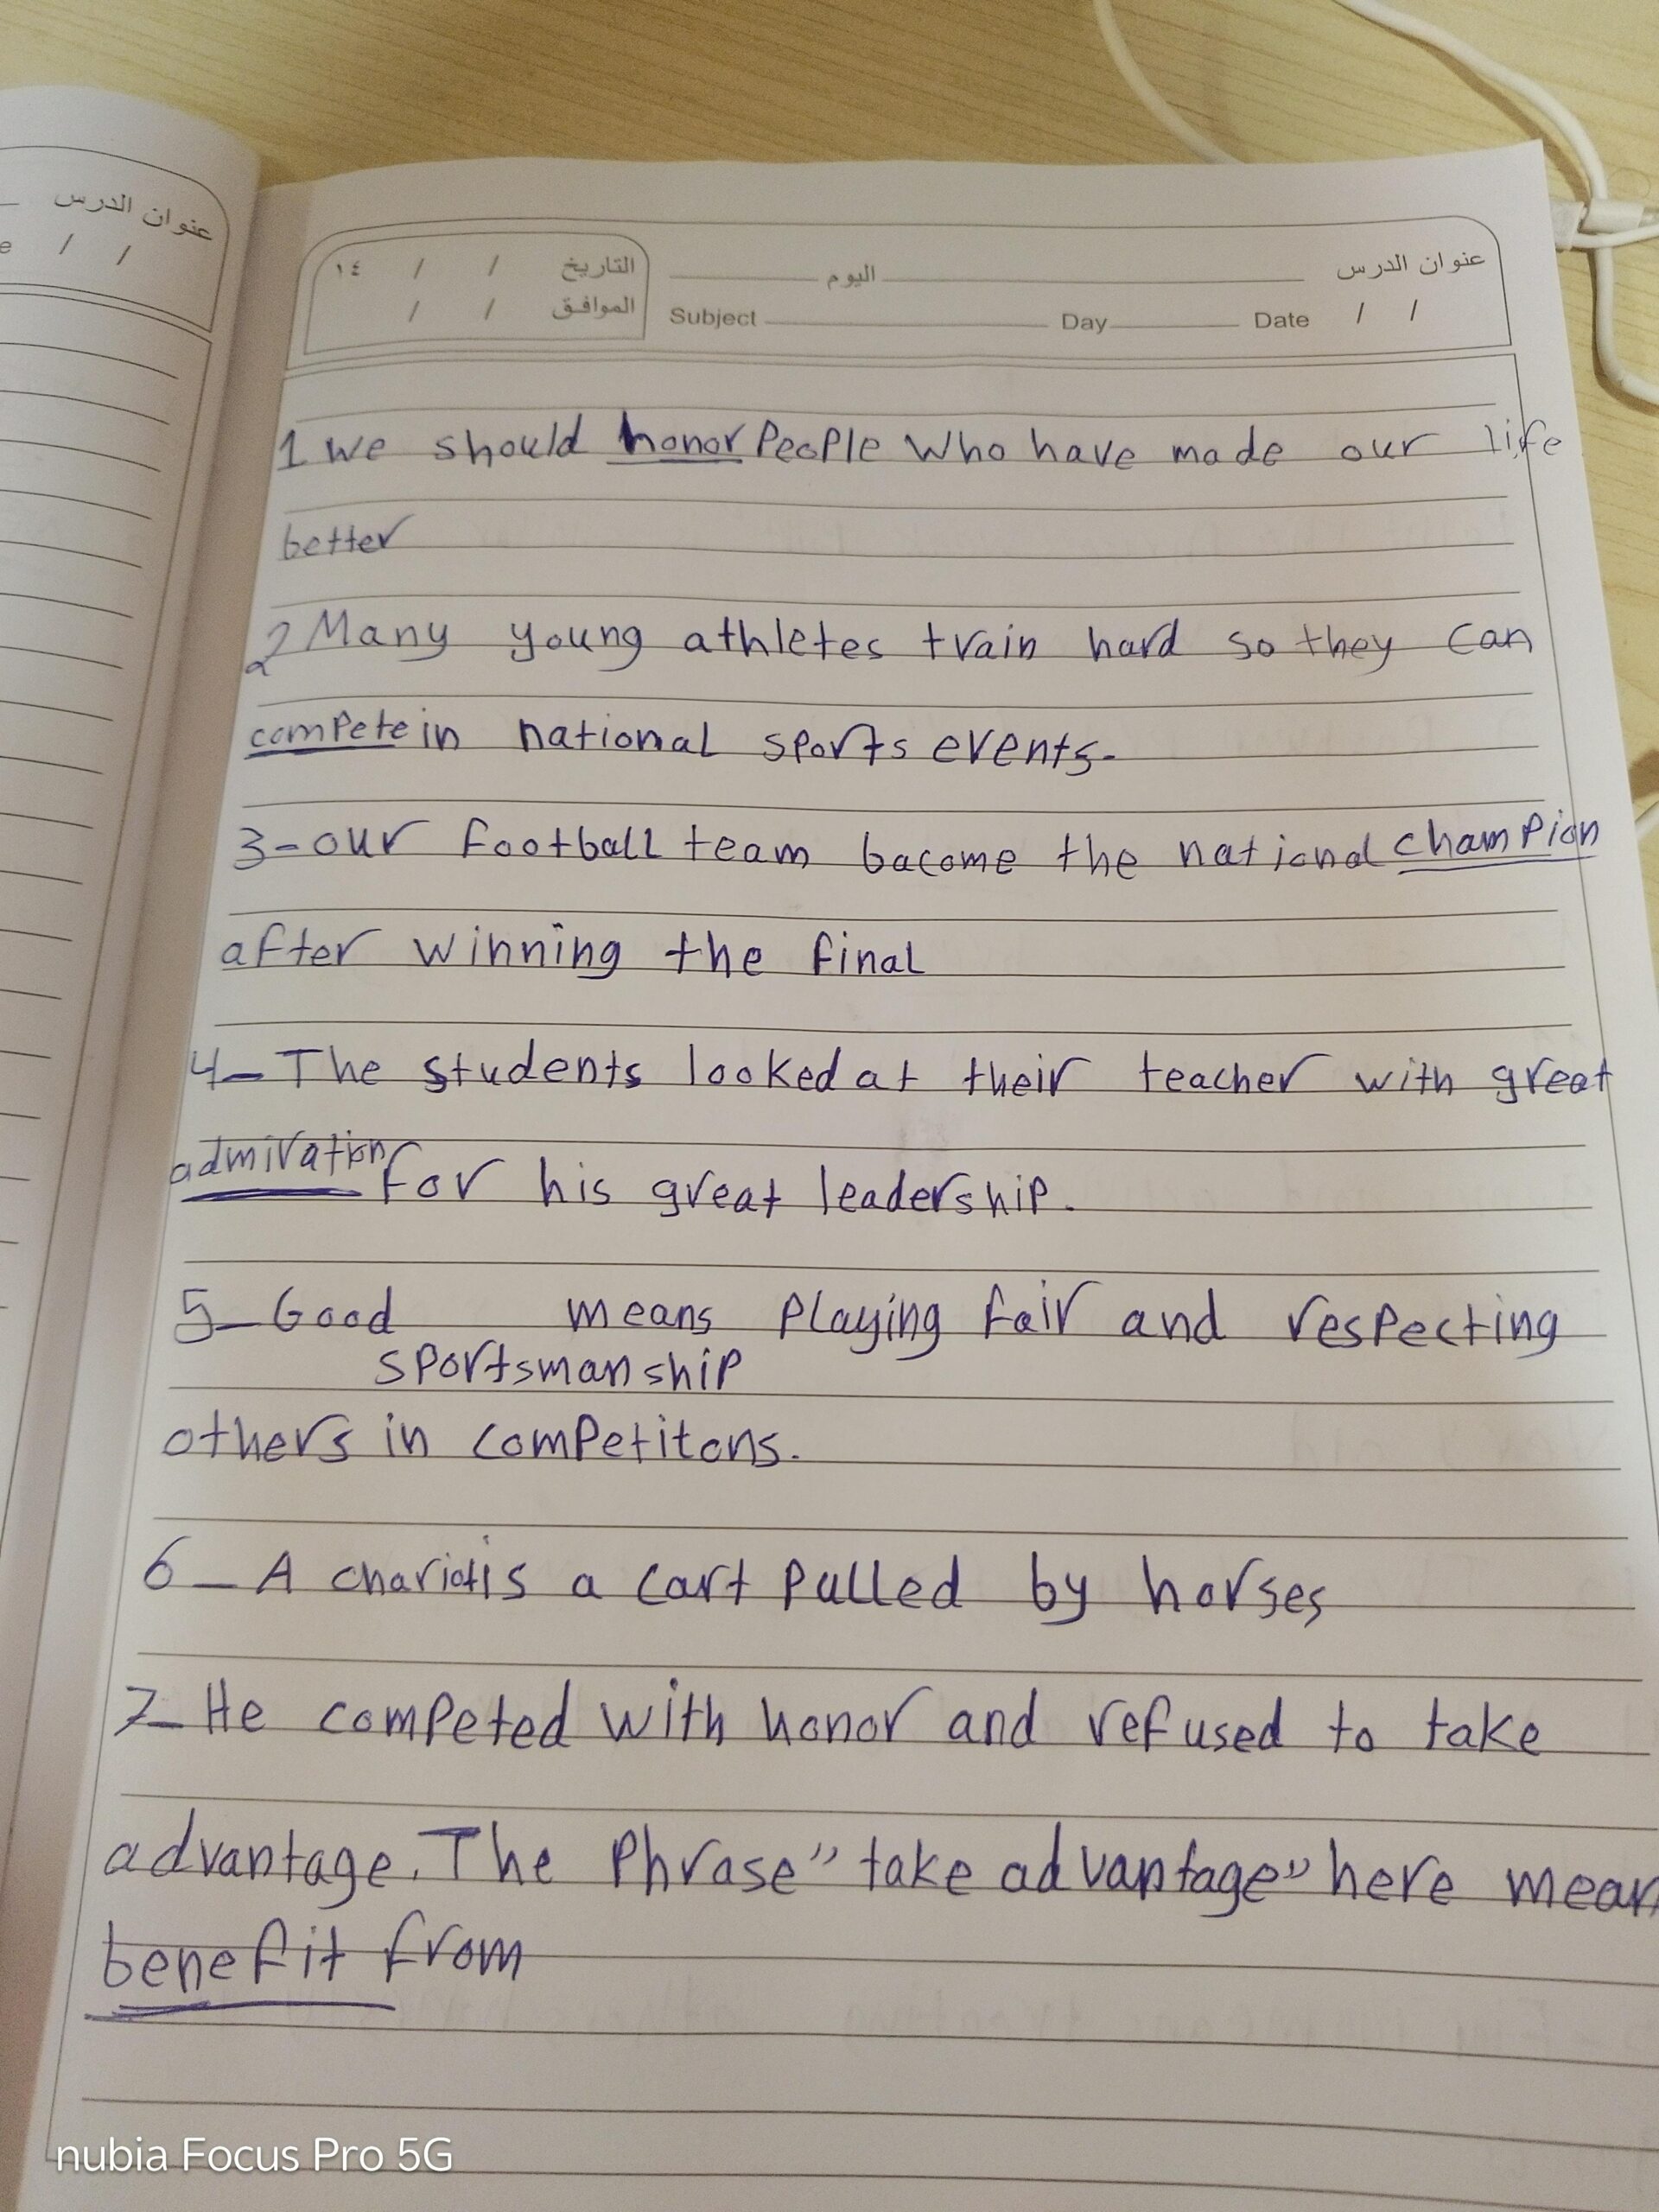 عنوان الدرس
e / /
عنوان الدرس اليوم التاريخ / / ١٤
Date / / Day Subject الموافق / /
1 we should honor People who have made our life
better
2 Many young athletes train hard so they can
compete in national sports events.
3-our football team bacome the national champion
after winning the final
4- The students looked at their teacher with great
admiration for his great leadership.
5- Good means Playing fair and respecting
sportsmanship
others in competitons.
6- A chariot is a cart pulled by horses
7- He competed with honor and refused to take
advantage. The Phrase "take advantage" here mean
benefit from
nubia Focus Pro 5G